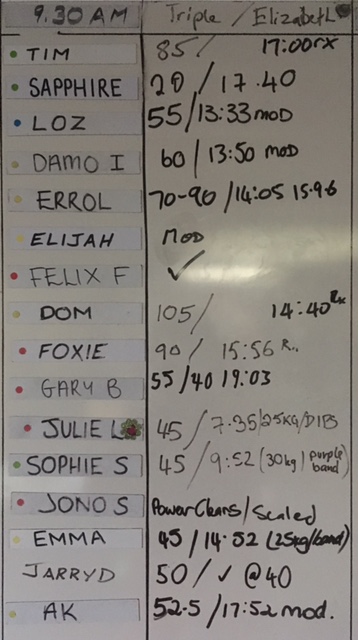 9.30 AM Triple / Elizabeth
TIM 85/ 17:00rx
SAPPHIRE 20 / 17.40
LOZ 55/13:33 MOD
DAMO I 60/ 13:50 MOD
ERROL 70-90 /14:05 15.9.6
ELIJAH MOD
FELIX F ✓
DOM 105/ 14:40 Rx
FOXIE 90/ 15:56 R..
GARY B 55/40 19:03
JULIE L 45 / 7.35/25KG/DIBS
SOPHIE S 45 / 9:52 (30kg) purple band)
JONO S Power Cleans/Scaled
EMMA 45/14:52 (25kg/band)
JARRYD 50/ ✓ @40
AK 52.5 /17:52 mod.